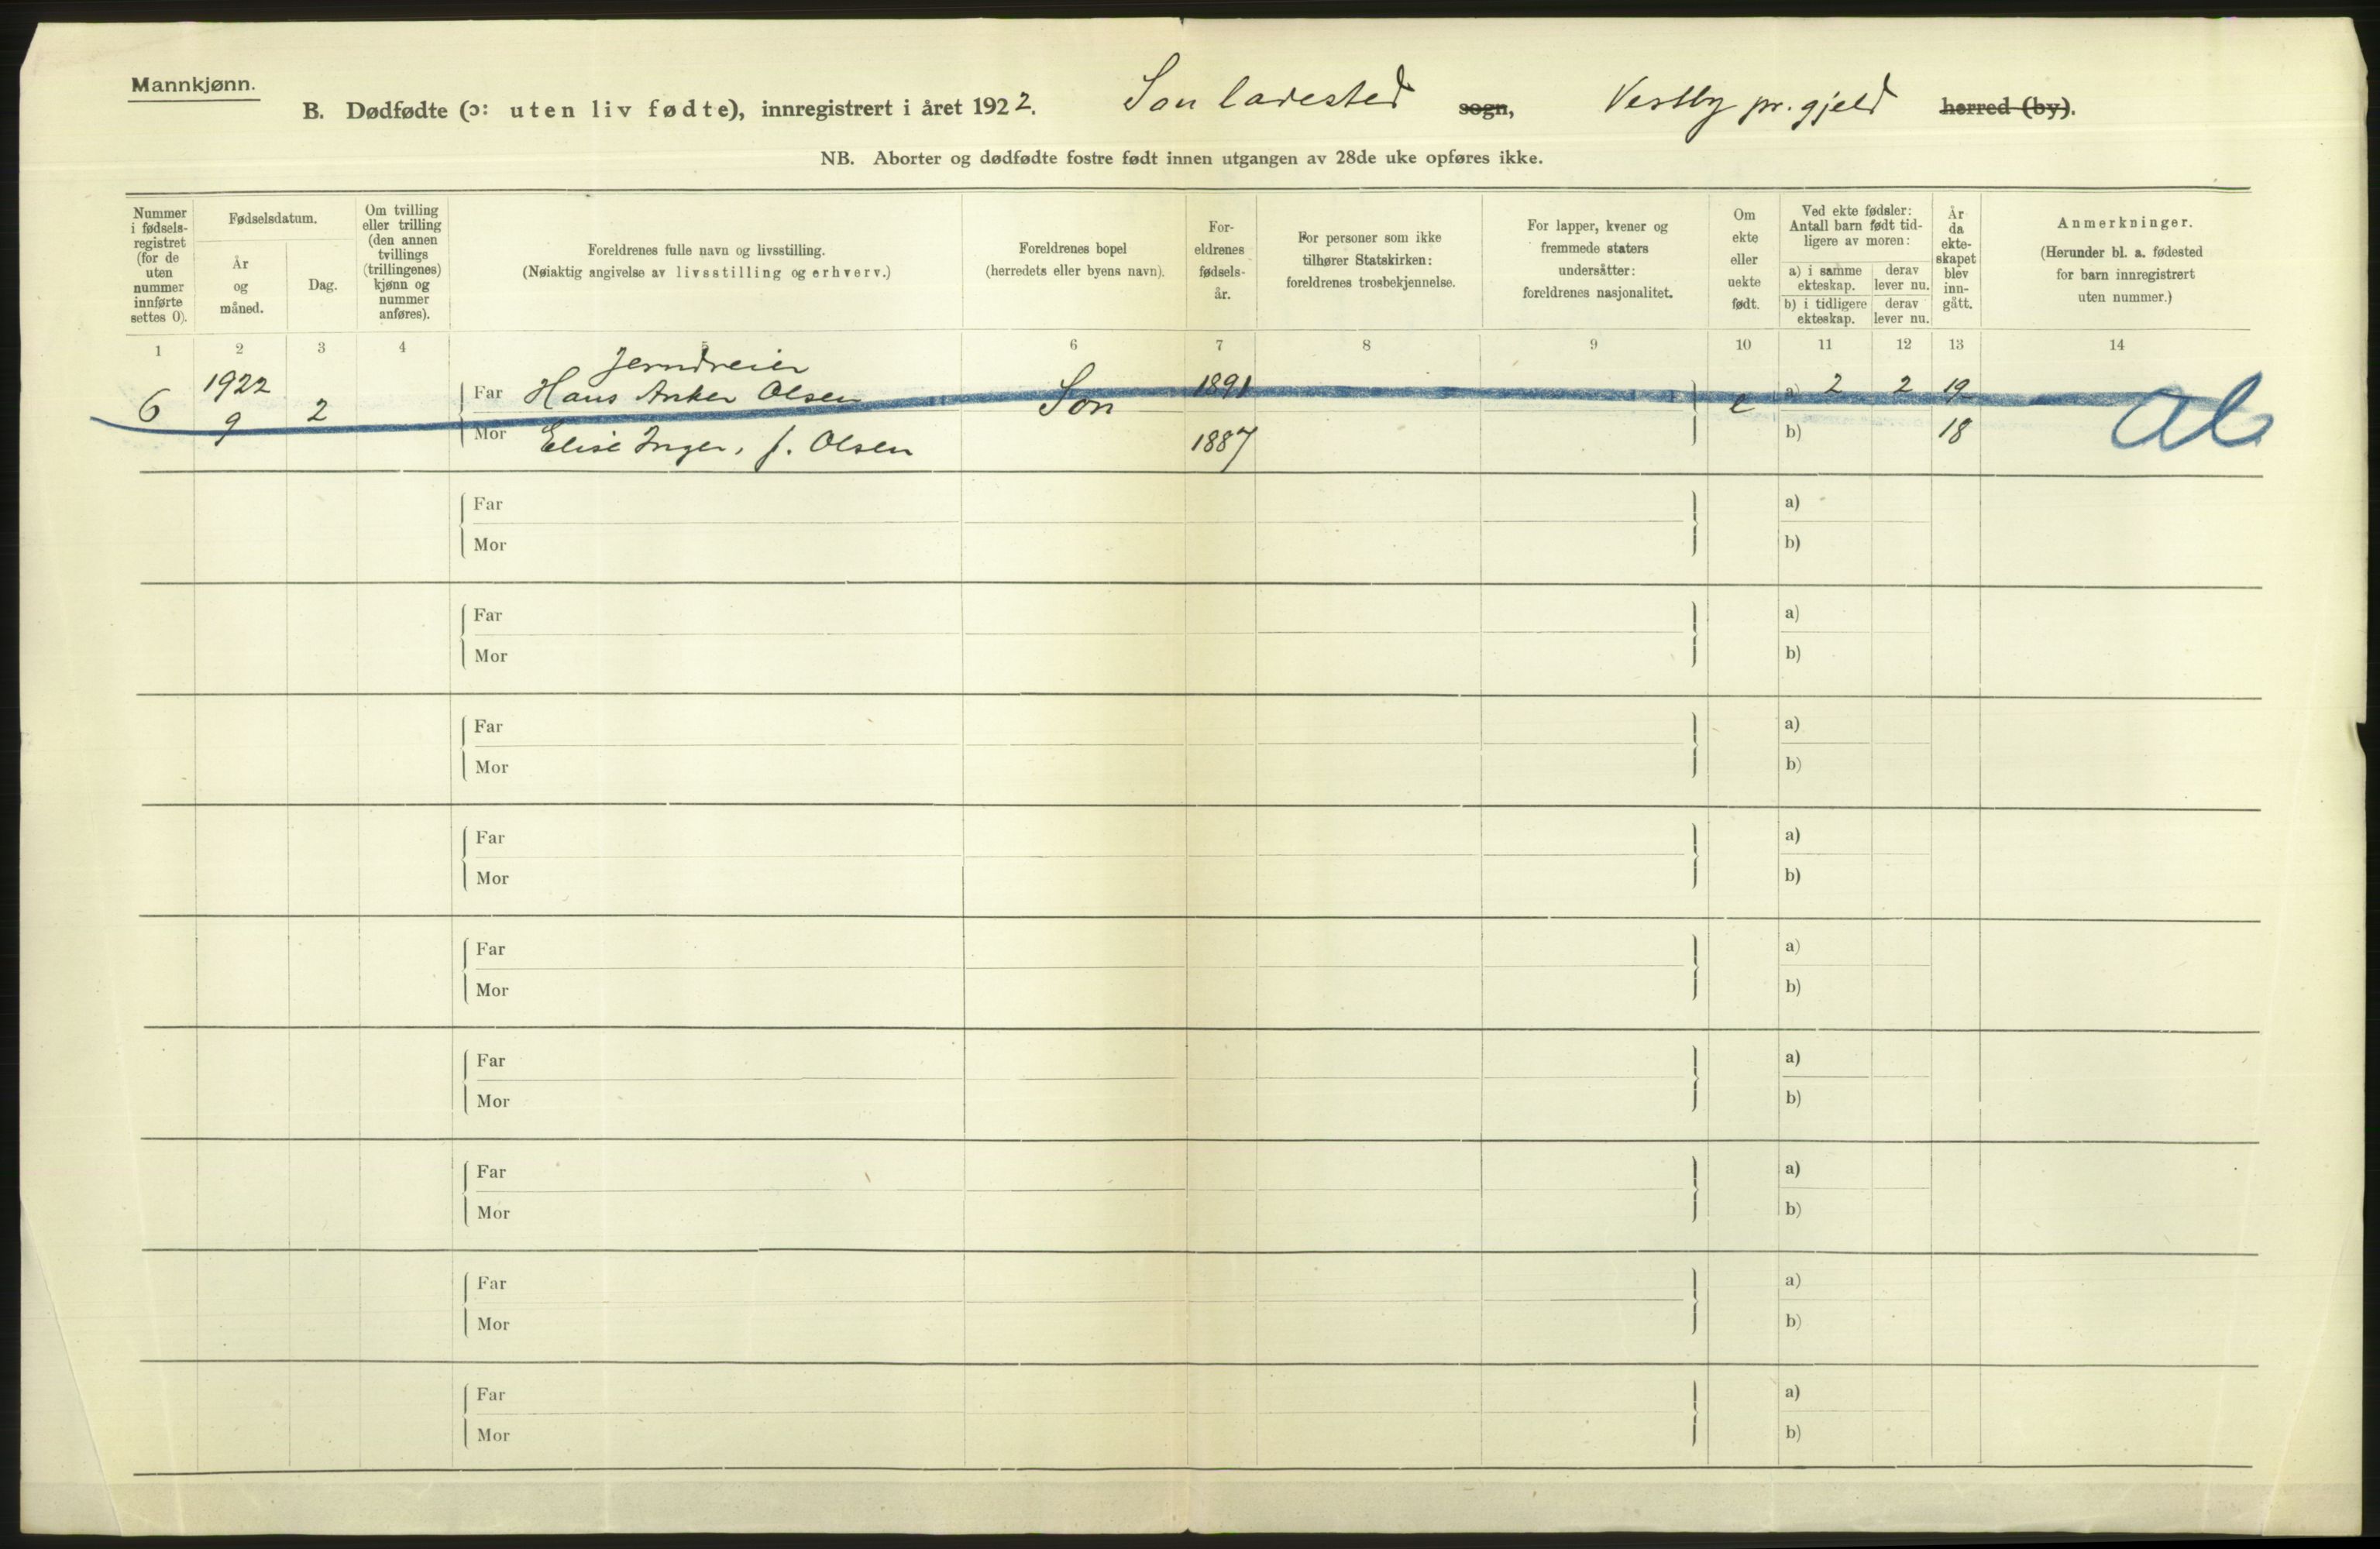 Mannkjønn.
B. Dødfødte (ɔ: uten liv fødte), innregistrert i året 1922. Son ladested sogn, Vestby pr.gjeld herred (by).
NB. Aborter og dødfødte fostre født innen utgangen av 28de uke opføres ikke.
Nummer i fødsels- registret (for de uten nummer innførte settes 0).
Fødselsdatum.
År og måned.
Dag.
Om tvilling eller trilling (den annen tvillings (trillingenes) kjønn og nummer anføres).
Foreldrenes fulle navn og livsstilling.
(Nøiaktig angivelse av livsstilling og erhverv.)
Foreldrenes bopel
(herredets eller byens navn).
For- eldrenes fødsels- år.
For personer som ikke tilhører Statskirken: foreldrenes trosbekjennelse.
For lapper, kvener og fremmede staters undersåtter: foreldrenes nasjonalitet.
Om ekte eller uekte født.
Ved ekte fødsler: Antall barn født tid- ligere av moren:
a) i samme ekteskap.
derav lever nu.
b) i tidligere ekteskap.
derav lever nu.
År da ekte- skapet blev inn- gått.
Anmerkninger.
(Herunder bl. a. fødested for barn innregistrert uten nummer.)
1 2 3 4 5 6 7 8 9 10 11 12 13 14
Jerndreier
6 1922 9 2 Far Hans Anker Olsen Son 1891 e a) 2 2 19
Mor Elise Inger, f. Olsen 1887 b) 18
Far a)
Mor b)
Far a)
Mor b)
Far a)
Mor b)
Far a)
Mor b)
Far a)
Mor b)
Far a)
Mor b)
Far a)
Mor b)
Far a)
Mor b)
Far a)
Mor b)